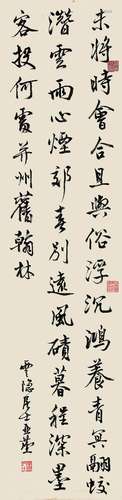 未將時會合且與俗浮沉鴻養青冥翮蛟
潛雲雨心煙郊春別遠風磧暮程深墨
客投何處并州舊翰林